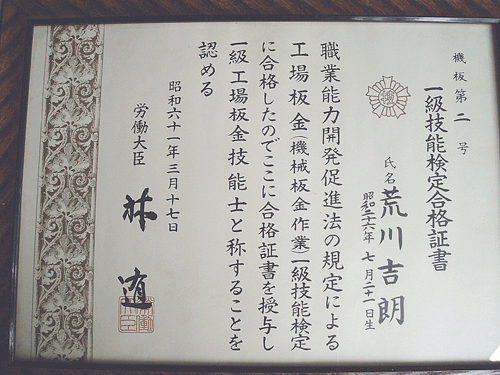 機板第二号
一級技能検定合格証書
氏名 荒川吉朗
昭和二十六年七月二十一日生
職業能力開発促進法の規定による
工場板金(機械板金作業)一級技能検定
に合格したのでここに合格証書を授与し
一級工場板金技能士と称することを
認める
昭和六十一年三月十七日
労働大臣
林 逌